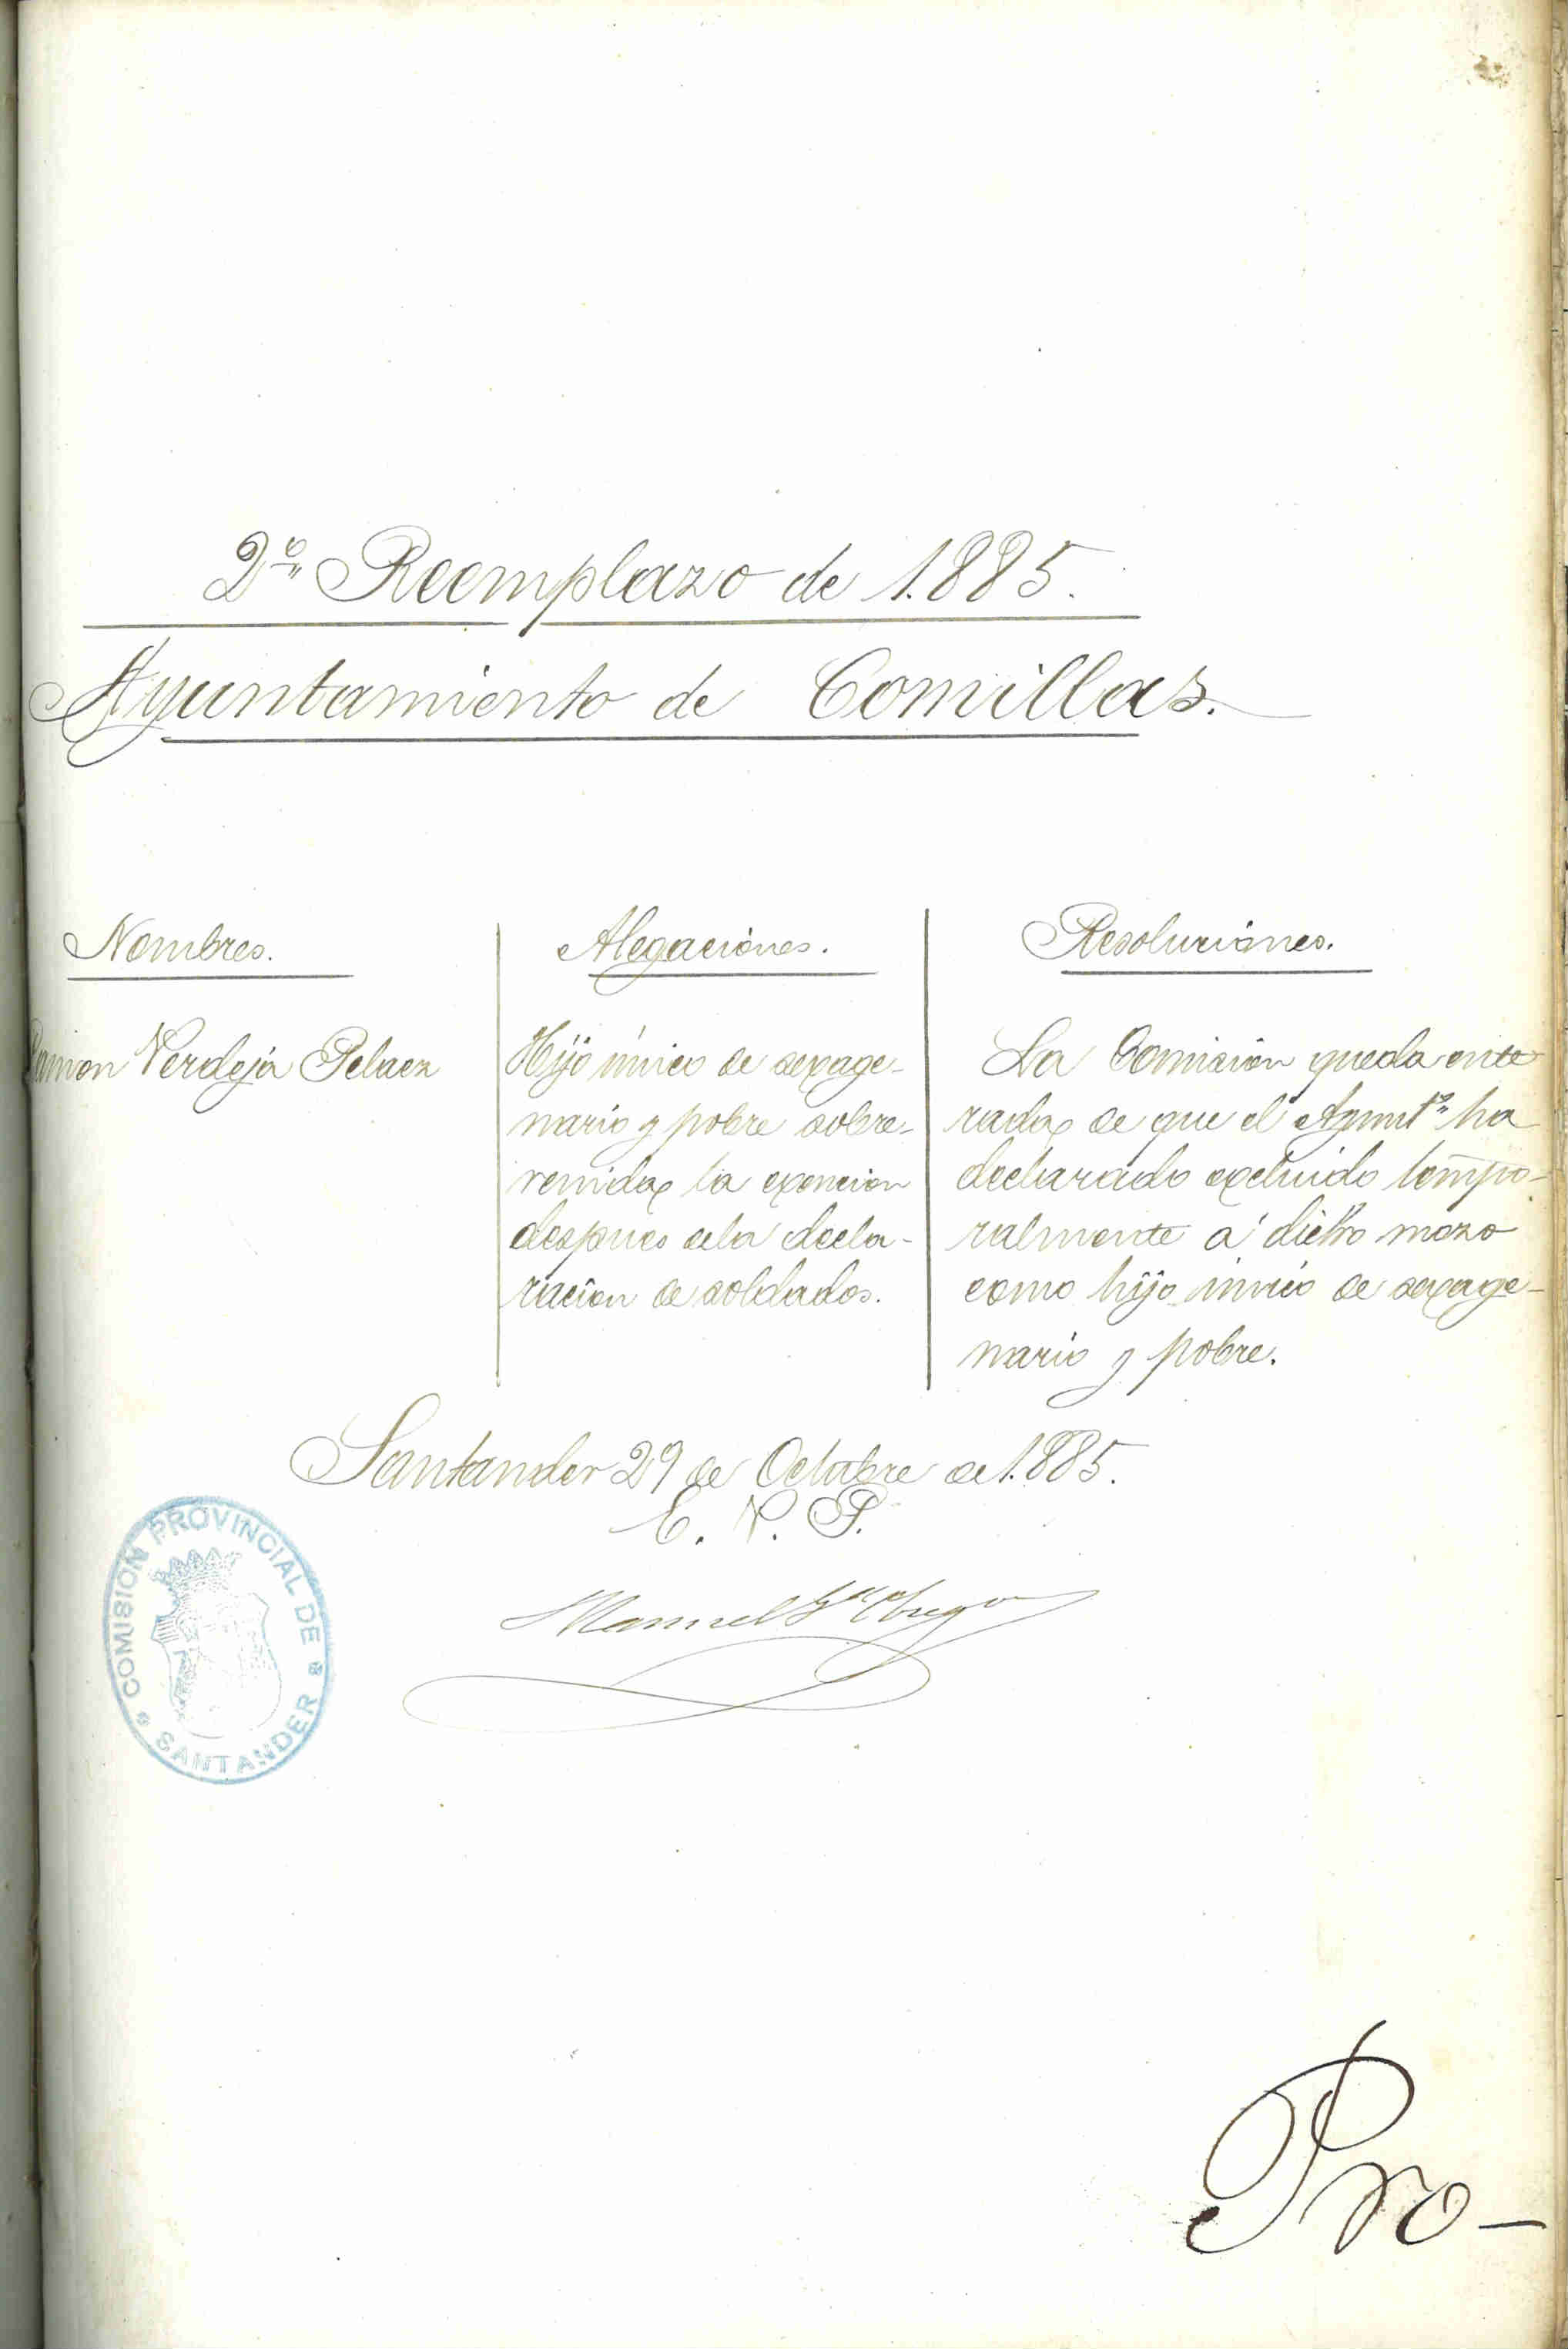 2º Reemplazo de 1.885.
Ayuntamiento de Comillas.
Nombres.
Ramon Verdeja Pelaez
Alegaciones.
Hijo único de sexage-
nario y pobre sobre-
venida la exencion
despues de la decla-
racion de soldados.
Resoluciones.
La Comisión queda ente
rada de que el Ayuntº ha
declarado excluido tempo-
ralmente á dicho mozo
como hijo único de sexage-
nario y pobre.
Santander 29 de Octubre de 1.885.
E. V. P.
Manuel
COMISION PROVINCIAL DE
SANTANDER
Pro-